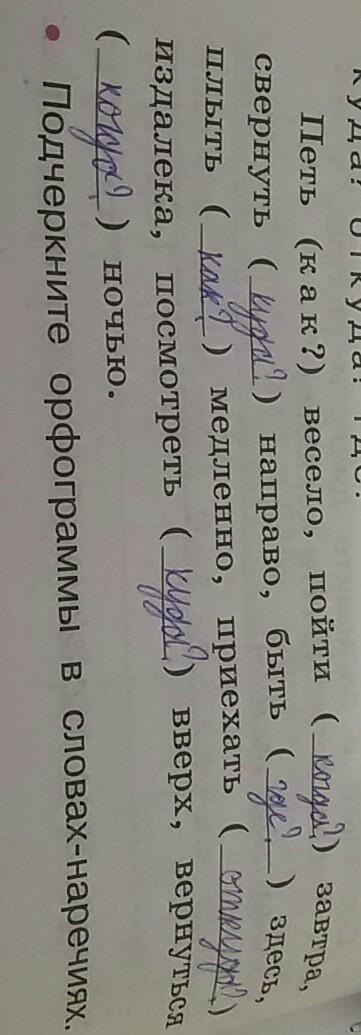 куда? откуда? где?
Петь (как?) весело, пойти (когда?) завтра,
свернуть (куда?) направо, быть (где?) здесь,
плыть (как?) медленно, приехать (откуда?)
издалека, посмотреть (куда?) вверх, вернуться
(когда?) ночью.
• Подчеркните орфограммы в словах-наречиях.